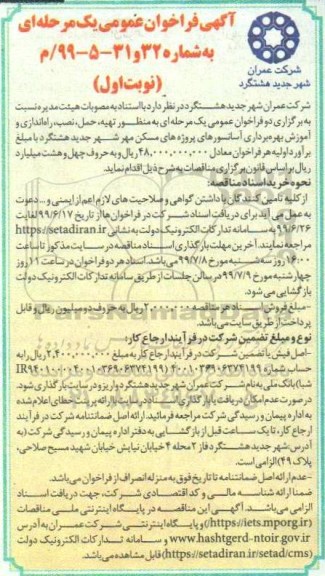 آگهی فراخوان عمومی یک مرحله ای
به شماره ۳۲ و ۳۱-۵-۹۹/م
(نوبت اول)
شرکت عمران
شهر جدید هشتگرد
شرکت عمران شهر جدید هشتگرد در نظر دارد با استناد به مصوبات هیئت مدیره نسبت
به برگزاری دو فراخوان عمومی یک مرحله ای به منظور تهیه، حمل، نصب، راه اندازی و
آموزش بهره برداری آسانسورهای پروژه های مسکن مهر شهر جدید هشتگرد با مبلغ
برآورد اولیه هر فراخوان معادل ۴۸,۰۰۰,۰۰۰,۰۰۰ ریال و به حروف چهل و هشت میلیارد
ریال بر اساس قانون برگزاری مناقصات به شرح ذیل اقدام نماید.
نحوه خرید اسناد مناقصه:
از کلیه تامین کنندگان با داشتن گواهی و صلاحیت های لازم اعم از ایمنی و... دعوت
به عمل می آید برای دریافت اسناد شرکت در فراخوان ها از تاریخ ۹۹/۶/۱۷ لغایت
۹۹/۶/۲۶ به سامانه تدارکات الکترونیک دولت به نشانی https://setadiran.ir
مراجعه نمایند. آخرین مهلت بارگذاری اسناد مناقصه در سایت مذکور تا ساعت
۱۶:۰۰ روز سه شنبه مورخ ۹۹/۷/۸ می باشد. اسناد هر دو فراخوان در ساعت ۱۱ روز
چهارشنبه مورخ ۹۹/۷/۹ در سالن جلسات از طریق سامانه تدارکات الکترونیک دولت
بازگشایی می شود.
-مبلغ فروش اسناد هر مناقصه ۲,۰۰۰,۰۰۰ ریال به حروف دو میلیون ریال و قابل
پرداخت از طریق سایت می باشد.
نوع و مبلغ تضمین شرکت در فرآیند ارجاع کار:
-اصل فیش یا تضمین شرکت در فرآیند ارجاع کار به مبلغ ۲,۴۰۰,۰۰۰,۰۰۰ ریال را به
بانک ملی به نام شرکت عمران شهر جدید هشتگرد واریز و در سایت بارگذاری شود.
در صورت عدم امکان دریافت یا بارگذاری اسناد در سامانه با ارائه پرینت خطای اعلام شده
به اداره پیمان و رسیدگی شرکت مراجعه فرمائید. ارائه اصل ضمانتنامه شرکت در فرآیند
ارجاع کار، تا یک ساعت قبل از بازگشایی به دفتر اداره پیمان و رسیدگی شرکت (به
آدرس شهر جدید هشتگرد فاز ۲ محله ۴ خیابان نیایش خیابان شهید مسیح صلاحی،
پلاک ۴۹) الزامی است.
-عدم ارائه اصل ضمانتنامه تا تاریخ فوق به منزله انصراف از فراخوان می باشد.
ضمنا ارائه شناسه ملی و کد اقتصادی شرکت، جهت دریافت اسناد
الزامی می باشد. آگهی این مناقصه در پایگاه اینترنتی ملی مناقصات
(https://iets.mporg.ir) و پایگاه اینترنتی شرکت عمران به آدرس
www.hashtgerd-ntoir.gov.ir و سامانه تدارکات الکترونیک دولت
(https://setadiran.ir/setad/cms) قابل مشاهده می باشد.